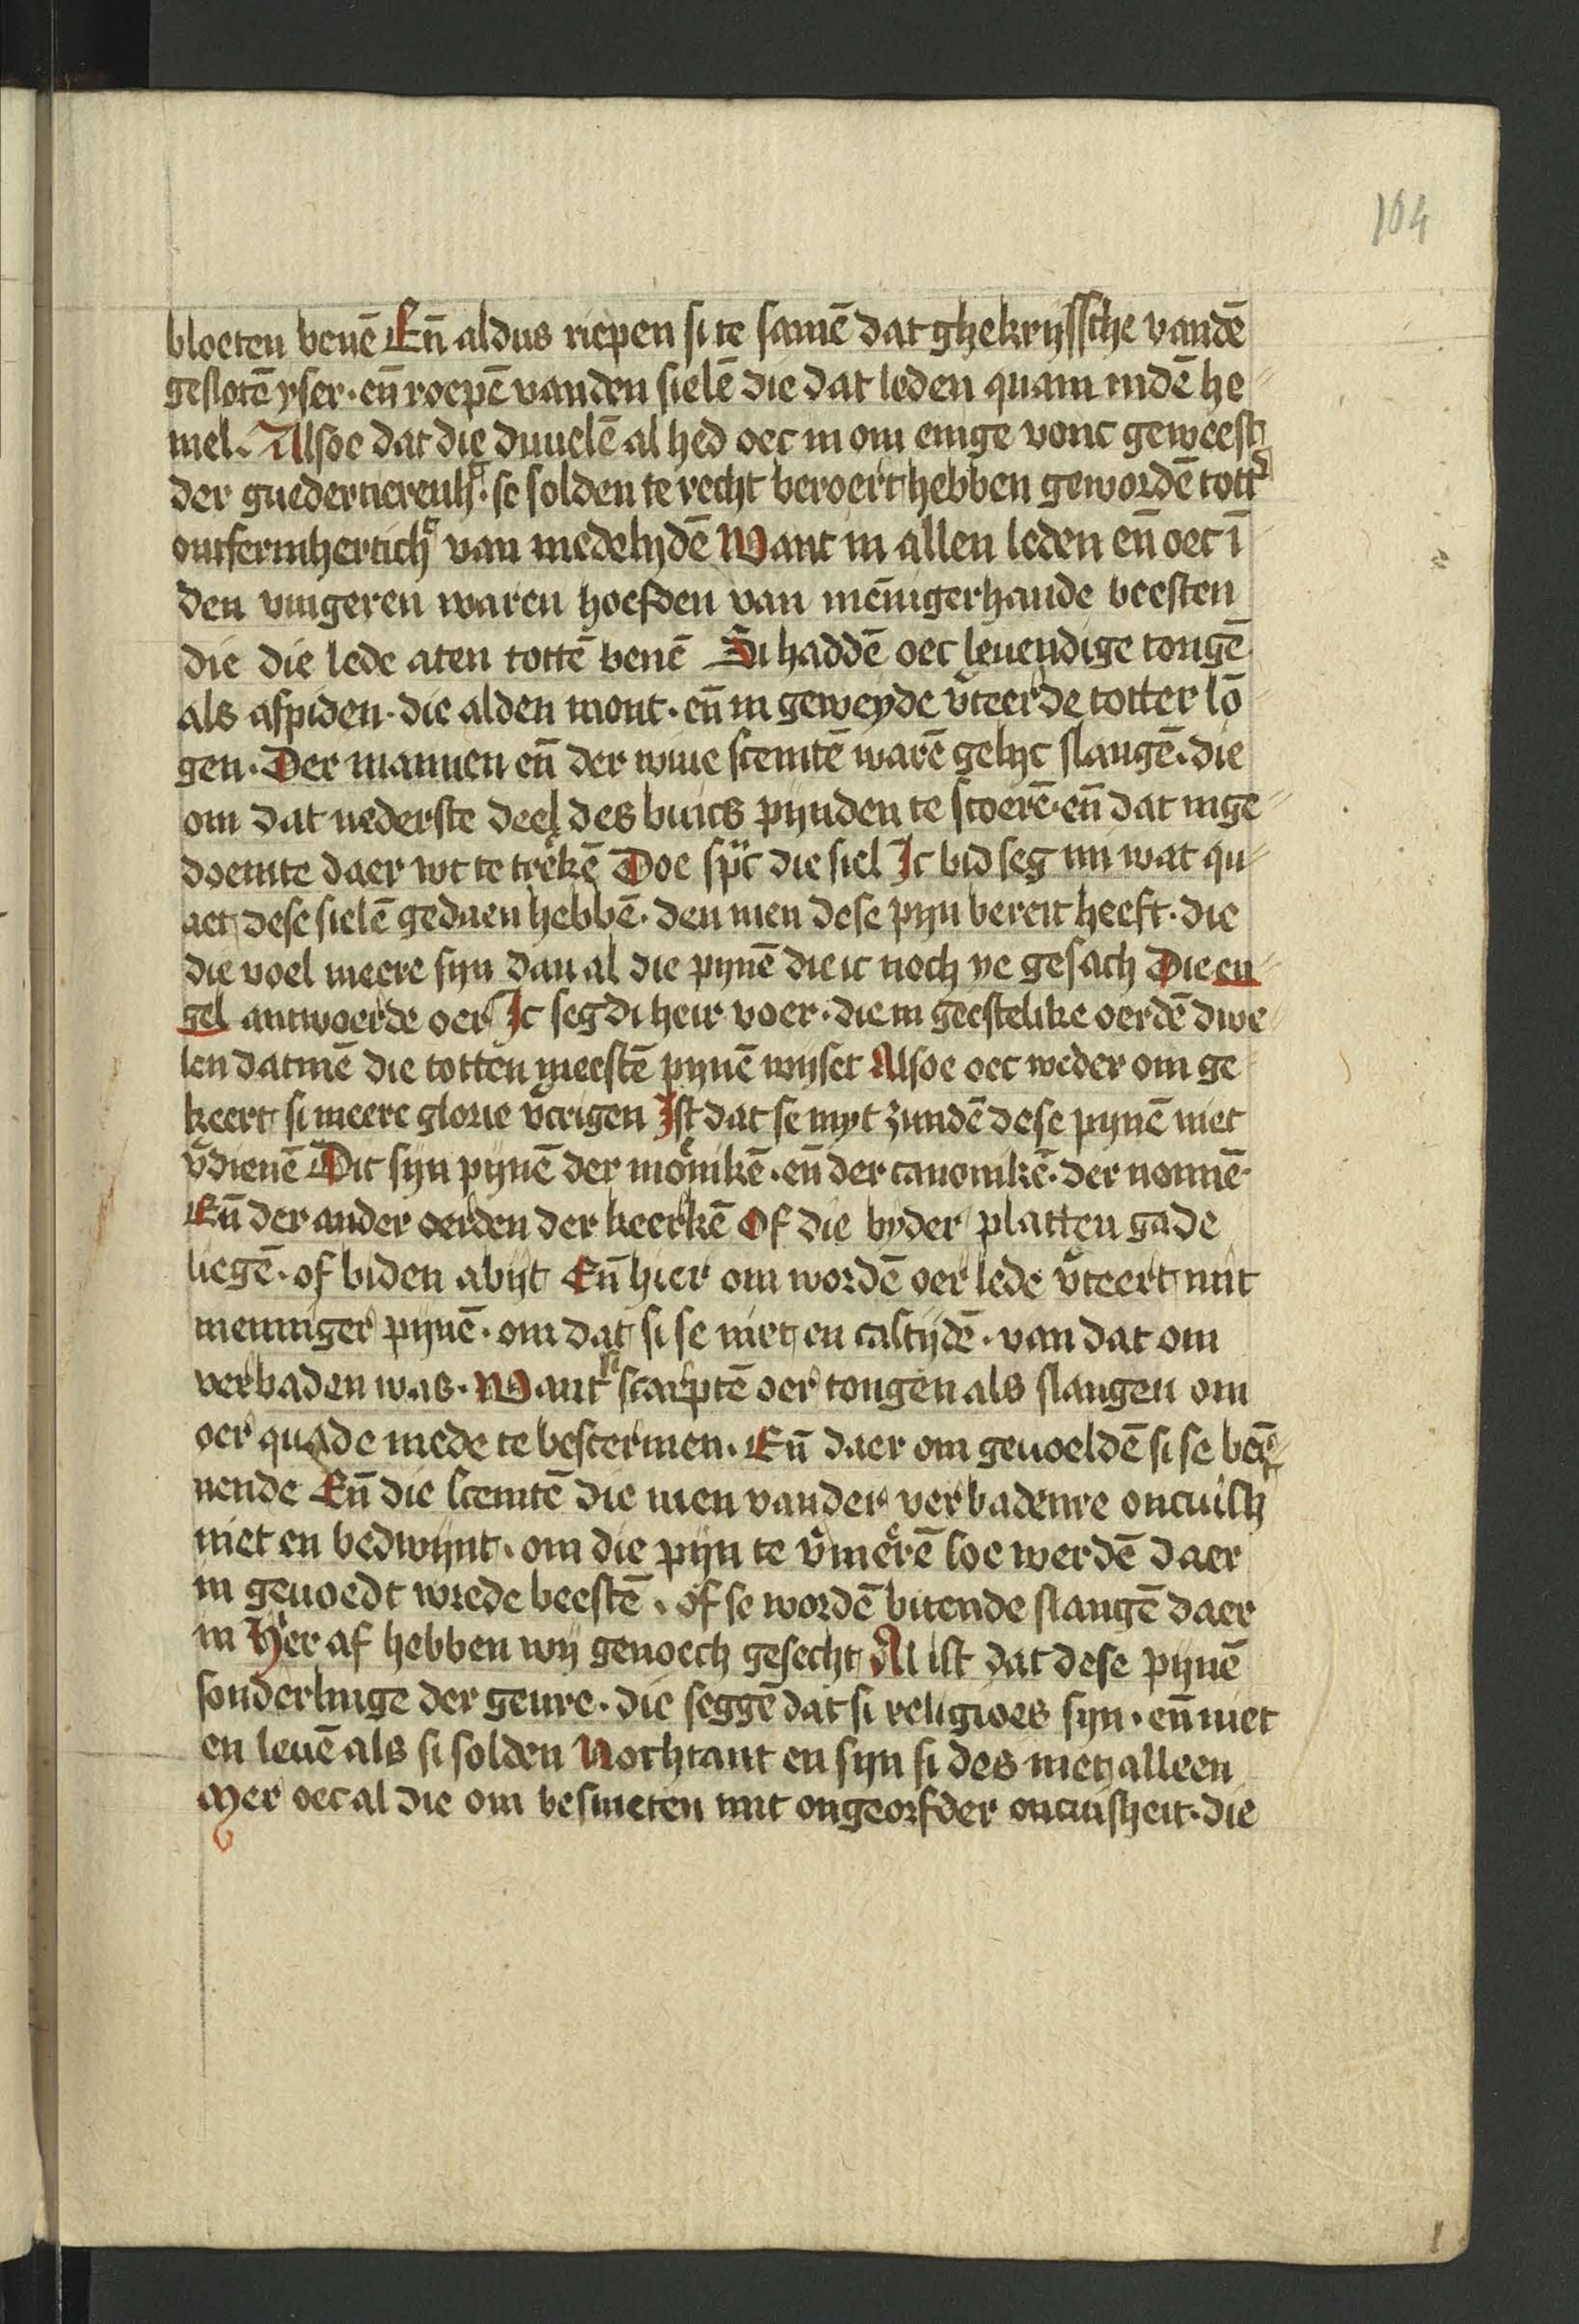 104
bloeten benē Eñ aldus riepen si te samē dat ghekrijssche vandē
geslotē yser · eñ roepē vanden sielē die dat leden quam indē he⸗
mel. Alsoe dat die duuelē al hed oec in om enige vonc geweest
der guedertierenh̾ · se solden te recht beroert hebben gewordē tott̾
ontfermhertich̾ van medelydē Want in allen leden eñ oec ī
den vingeren waren hoefden van mēnigerhande beesten
die die lede aten tottē benē Si haddē oec leuendige tongē
als aspiden · die alden mont · eñ in geweyde v̄teerde totter lō⸗
gen · Der mannen eñ der wiue scemtē warē gelyc slangē · die
om dat nederste deel des buics pijnden te scoerē · eñ dat inge⸗
doemte daer wt te treckē Doe sprc die siel Ic bid seg mi wat qu⸗
aet dese sielē gedaen hebbē · den men dese pijn bereit heeft · die
die voel meere sijn dan al die pynē die ic noch ye gesach Die en⸗
gel antwoerde oer Ic seg di heir voer · die in geestelike oerdē dwe⸗
len datmē die totten meestē pynē wijset Alsoe oec weder om ge⸗
keert si meere glorie v̄crigen Ist dat se myt zundē dese pynē niet
v̄dienē Dit sijn pynē der monikē · eñ der canonikē · der nonnē ·
Eñ der ander oerden der keerkē Of die byder platten gade
liegē · of biden abijt Eñ hier om wordē oer lede v̄teert mit
menniger pynē · om dat si se niet en castijdē · van dat om
verbaden was · Want si scarptē oer tongen als slangen om
oer quade mede te bestermen · Eñ daer om geuoeldē si se ber⸗
nende Eñ die scemtē die men vander verbadenre oncuish̾
niet en bedwijnt · om die pijn te v̄merē soe werdē daer
in geuoedt wrede beestē · of se wordē bitende slangē daer
in Hier af hebben wij genoech gesecht Al ist dat dese pynē
sonderlinge der geure · die seggē dat si religioes sijn · eñ niet
en leuē als si solden Nochtant en sijn si des niet alleen
Mer oec al die om besmeten mit ongeorfder oncuisheit · die